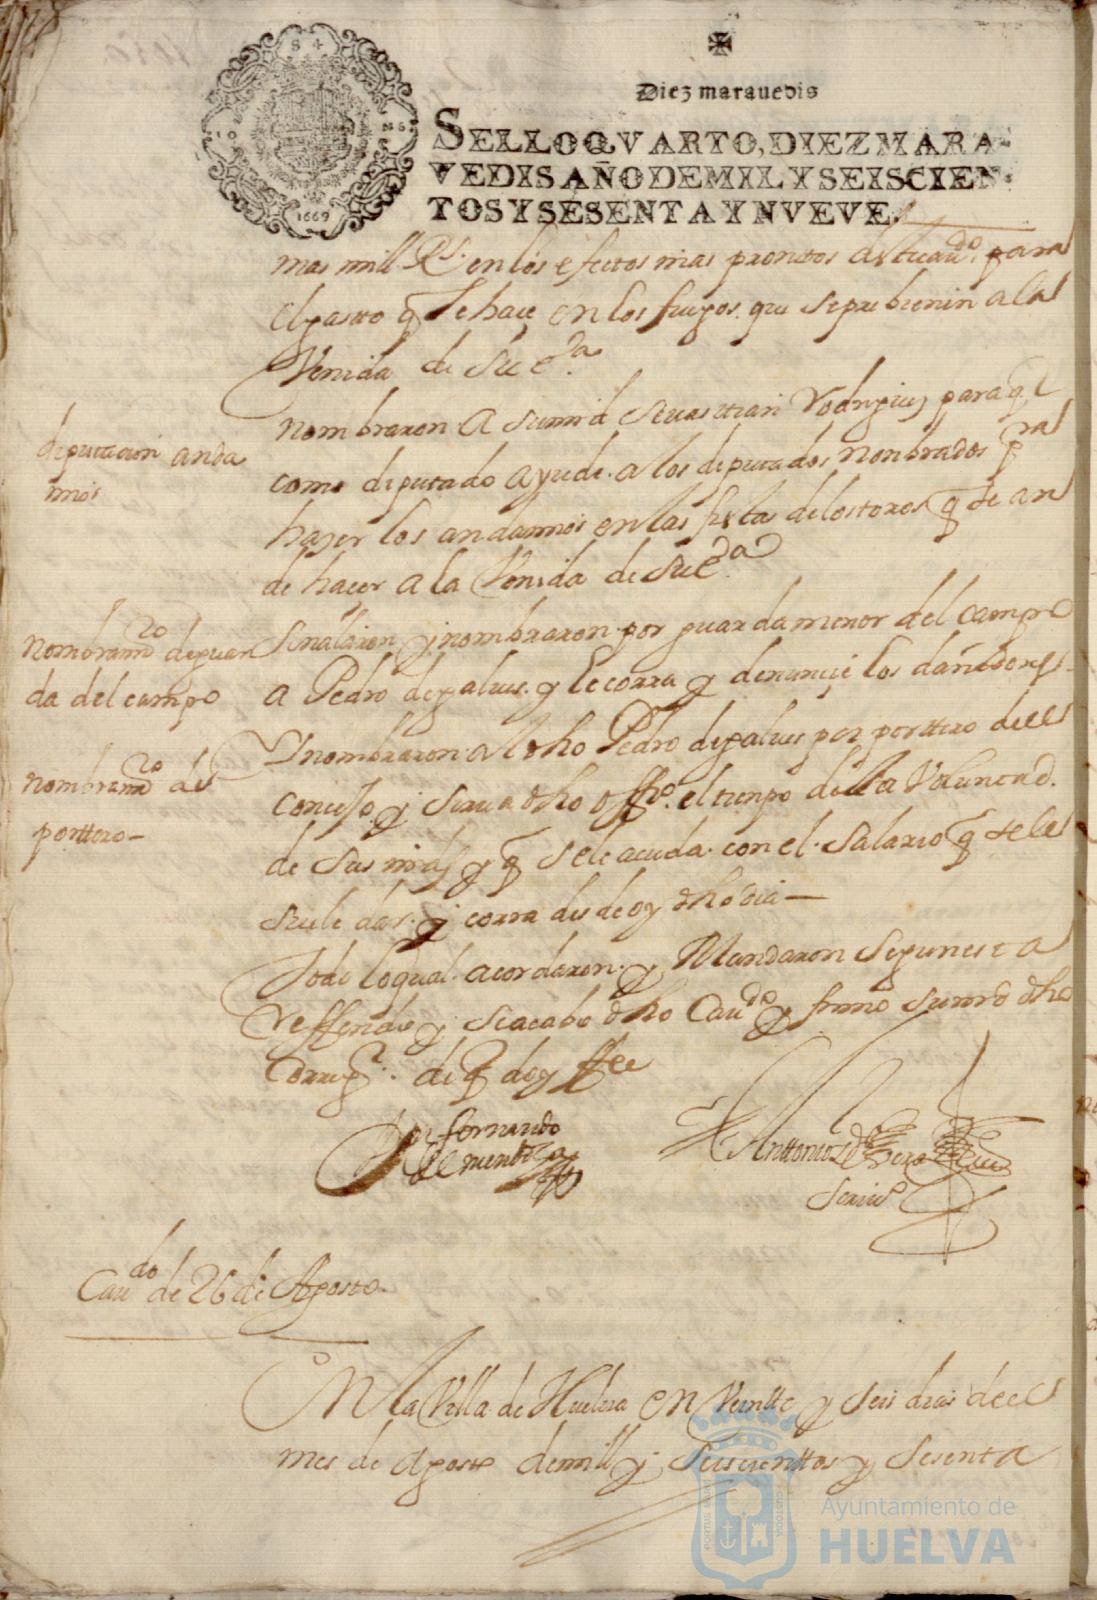 Diez marauedis
SELLO QVARTO, DIEZ MARA-
VEDIS AÑO DE MIL Y SEISCIEN-
TOS Y SESENTA Y NVEVE.
1669
mas mill Rs. en los efectos mas promtos para
el gasto q se haze en los fuegos que se preuienen a la
Venida de su exa.
deputacion anda
mios
nombraron a sumd seuastian Rodrigues para q
como deputado ayude a los deputados nonbrados pra
hazer los andamios en las fiesta de los toros q se an
de hacer a la Venida de su exa
nombramto de guar
da del campo
Senalaron y nombraron por guarda menor del campo
a Pedro de galues y le corra y denuncie los dañadores
nombramto de
porttero
Y nombraron al dho Pedro de galues por porttero deel
concejo y serua dho offo. el tienpo de la Voluntad
de sus mrds y q se le acuda con el salario q se le
suele dar y corra desde oy dho dia
Todo lo qual acordaron y Mandaron
y se acabo dho Caudo y firmo su md dho
Corregr. de q doy ffee
Don fernando
de mendoza
Anttonio de
Scriuo
Caudo de 26 de Agosto
En la Villa de Huelua en Veintte y seis dias deel
mes de Agosto de mill y seiscienttos y sesenta
Ayuntamiento de
HUELVA